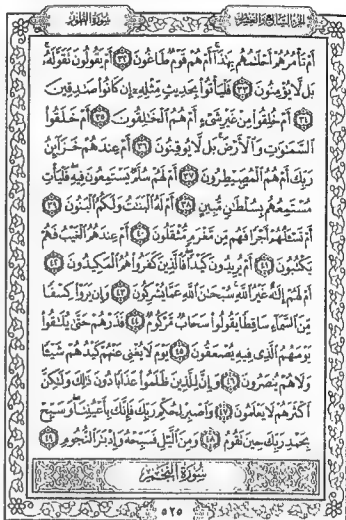 سُورَةُ الطُّورِ
الجزء السابع والعشرون
أَمۡ تَأۡمُرُهُمۡ أَحۡلَٰمُهُم بِهَٰذَآۚ أَمۡ هُمۡ قَوۡمٞ طَاغُونَ ٣٢ أَمۡ يَقُولُونَ تَقَوَّلَهُۥۚ
بَل لَّا يُؤۡمِنُونَ ٣٣ فَلۡيَأۡتُواْ بِحَدِيثٖ مِّثۡلِهِۦٓ إِن كَانُواْ صَٰدِقِينَ
٣٤ أَمۡ خُلِقُواْ مِنۡ غَيۡرِ شَيۡءٍ أَمۡ هُمُ ٱلۡخَٰلِقُونَ ٣٥ أَمۡ خَلَقُواْ
ٱلسَّمَٰوَٰتِ وَٱلۡأَرۡضَۚ بَل لَّا يُوقِنُونَ ٣٦ أَمۡ عِندَهُمۡ خَزَآئِنُ
رَبِّكَ أَمۡ هُمُ ٱلۡمُصَۜيۡطِرُونَ ٣٧ أَمۡ لَهُمۡ سُلَّمٞ يَسۡتَمِعُونَ فِيهِۖ فَلۡيَأۡتِ
مُسۡتَمِعُهُم بِسُلۡطَٰنٖ مُّبِينٍ ٣٨ أَمۡ لَهُ ٱلۡبَنَٰتُ وَلَكُمُ ٱلۡبَنُونَ ٣٩
أَمۡ تَسۡـَٔلُهُمۡ أَجۡرٗا فَهُم مِّن مَّغۡرَمٖ مُّثۡقَلُونَ ٤٠ أَمۡ عِندَهُمُ ٱلۡغَيۡبُ فَهُمۡ
يَكۡتُبُونَ ٤١ أَمۡ يُرِيدُونَ كَيۡدٗاۖ فَٱلَّذِينَ كَفَرُواْ هُمُ ٱلۡمَكِيدُونَ ٤٢
أَمۡ لَهُمۡ إِلَٰهٌ غَيۡرُ ٱللَّهِۚ سُبۡحَٰنَ ٱللَّهِ عَمَّا يُشۡرِكُونَ ٤٣ وَإِن يَرَوۡاْ كِسۡفٗا
مِّنَ ٱلسَّمَآءِ سَاقِطٗا يَقُولُواْ سَحَابٞ مَّرۡكُومٞ ٤٤ فَذَرۡهُمۡ حَتَّىٰ يُلَٰقُواْ
يَوۡمَهُمُ ٱلَّذِي فِيهِ يُصۡعَقُونَ ٤٥ يَوۡمَ لَا يُغۡنِي عَنۡهُمۡ كَيۡدُهُمۡ شَيۡـٔٗا
وَلَا هُمۡ يُنصَرُونَ ٤٦ وَإِنَّ لِلَّذِينَ ظَلَمُواْ عَذَابٗا دُونَ ذَٰلِكَ وَلَٰكِنَّ
أَكۡثَرَهُمۡ لَا يَعۡلَمُونَ ٤٧ وَٱصۡبِرۡ لِحُكۡمِ رَبِّكَ فَإِنَّكَ بِأَعۡيُنِنَاۖ وَسَبِّحۡ
بِحَمۡدِ رَبِّكَ حِينَ تَقُومُ ٤٨ وَمِنَ ٱلَّيۡلِ فَسَبِّحۡهُ وَإِدۡبَٰرَ ٱلنُّجُومِ ٤٩
سُورَةُ النَّجْمِ
٥٢٥